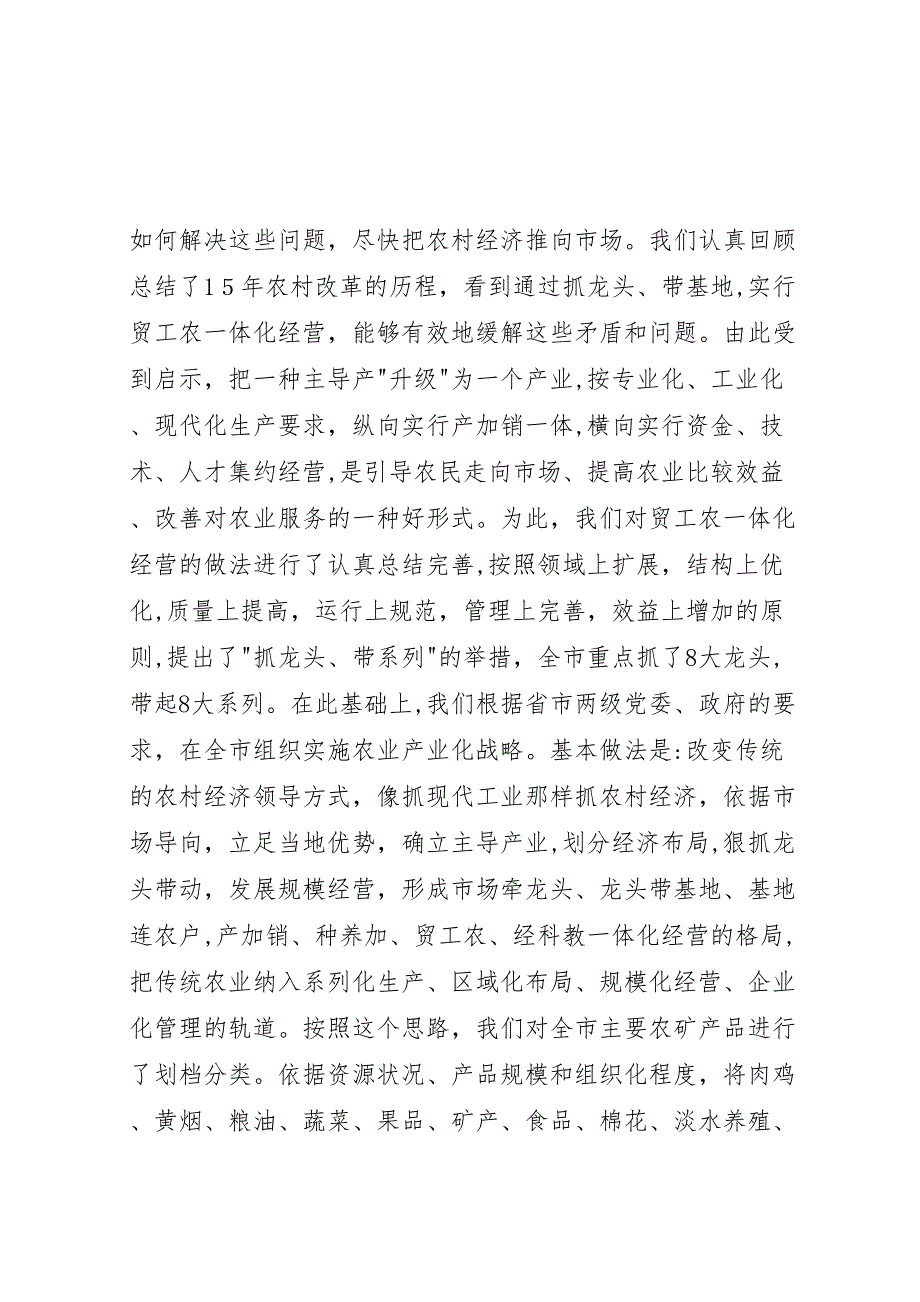 如何解决这些问题，尽快把农村经济推向市场。我们认真回顾
总结了1５年农村改革的历程，看到通过抓龙头、带基地,实行
贸工农一体化经营，能够有效地缓解这些矛盾和问题。由此受
到启示，把一种主导产"升级"为一个产业,按专业化、工业化
、现代化生产要求，纵向实行产加销一体,横向实行资金、技
术、人才集约经营,是引导农民走向市场、提高农业比较效益
、改善对农业服务的一种好形式。为此，我们对贸工农一体化
经营的做法进行了认真总结完善,按照领域上扩展，结构上优
化,质量上提高，运行上规范，管理上完善，效益上增加的原
则,提出了"抓龙头、带系列"的举措，全市重点抓了8大龙头,
带起8大系列。在此基础上,我们根据省市两级党委、政府的要
求，在全市组织实施农业产业化战略。基本做法是:改变传统
的农村经济领导方式，像抓现代工业那样抓农村经济，依据市
场导向，立足当地优势，确立主导产业,划分经济布局,狠抓龙
头带动，发展规模经营，形成市场牵龙头、龙头带基地、基地
连农户,产加销、种养加、贸工农、经科教一体化经营的格局,
把传统农业纳入系列化生产、区域化布局、规模化经营、企业
化管理的轨道。按照这个思路，我们对全市主要农矿产品进行
了划档分类。依据资源状况、产品规模和组织化程度，将肉鸡
、黄烟、粮油、蔬菜、果品、矿产、食品、棉花、淡水养殖、